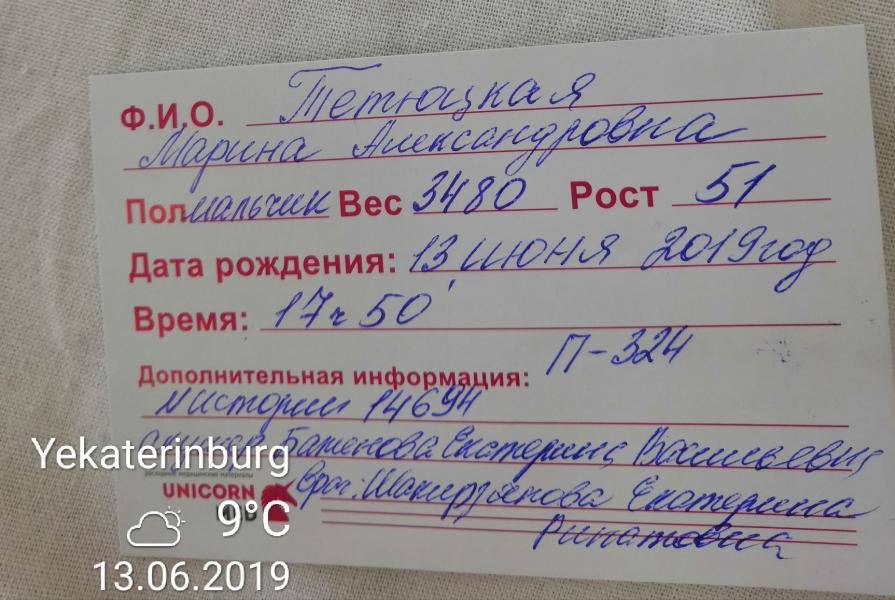 Ф.И.О. Тетюцкая
Марина Александровна
Пол мальчик Вес 3480 Рост 51
Дата рождения: 13 июня 2019 год
Время: 17ч 50'
Дополнительная информация: П-324
N истории 14694
акушер Баженова Екатерина Васильевна
врач: Шакирзянова Екатерина
Ринатовна
расходные медицинские материалы
UNICORN
MED
Yekaterinburg
9°C
13.06.2019